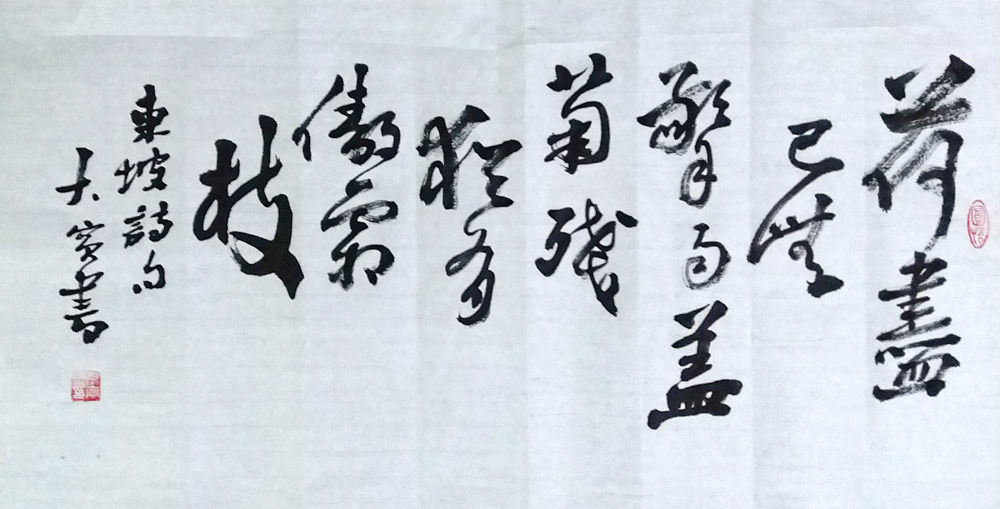 荷盡
已無
擎雨蓋
菊残
猶有
傲霜
枝
東坡詩句
大賓書